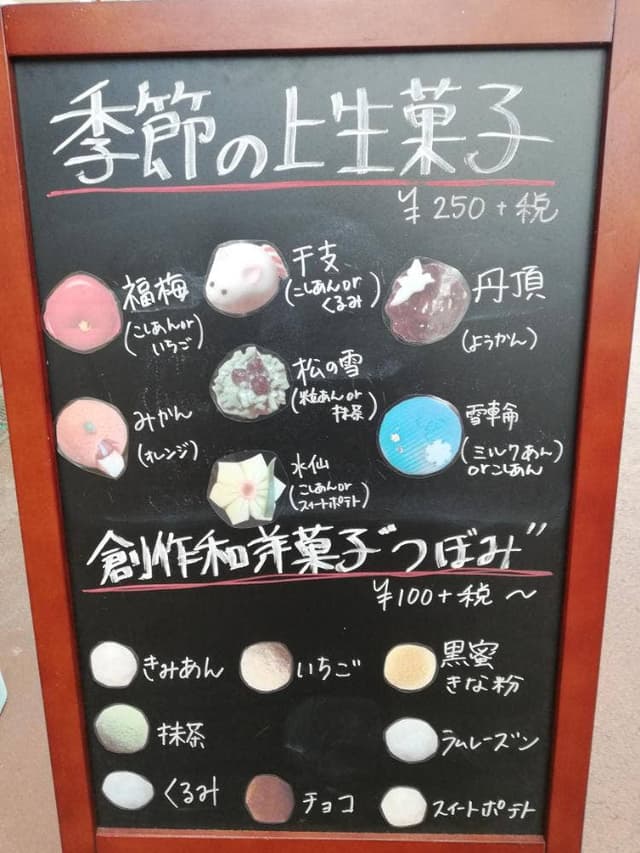 季節の上生菓子
¥250+税
福梅
(こしあんor
いちご)
干支
(こしあんor
くるみ)
丹頂
(ようかん)
松の雪
(粒あんor
抹茶)
みかん
(オレンジ)
雪輪
(ミルクあん)
orこしあん
水仙
(こしあんor
スイートポテト)
創作和洋菓子"つぼみ"
¥100+税〜
きみあん
いちご
黒蜜
きな粉
抹茶
ラムレーズン
くるみ
チョコ
スイートポテト